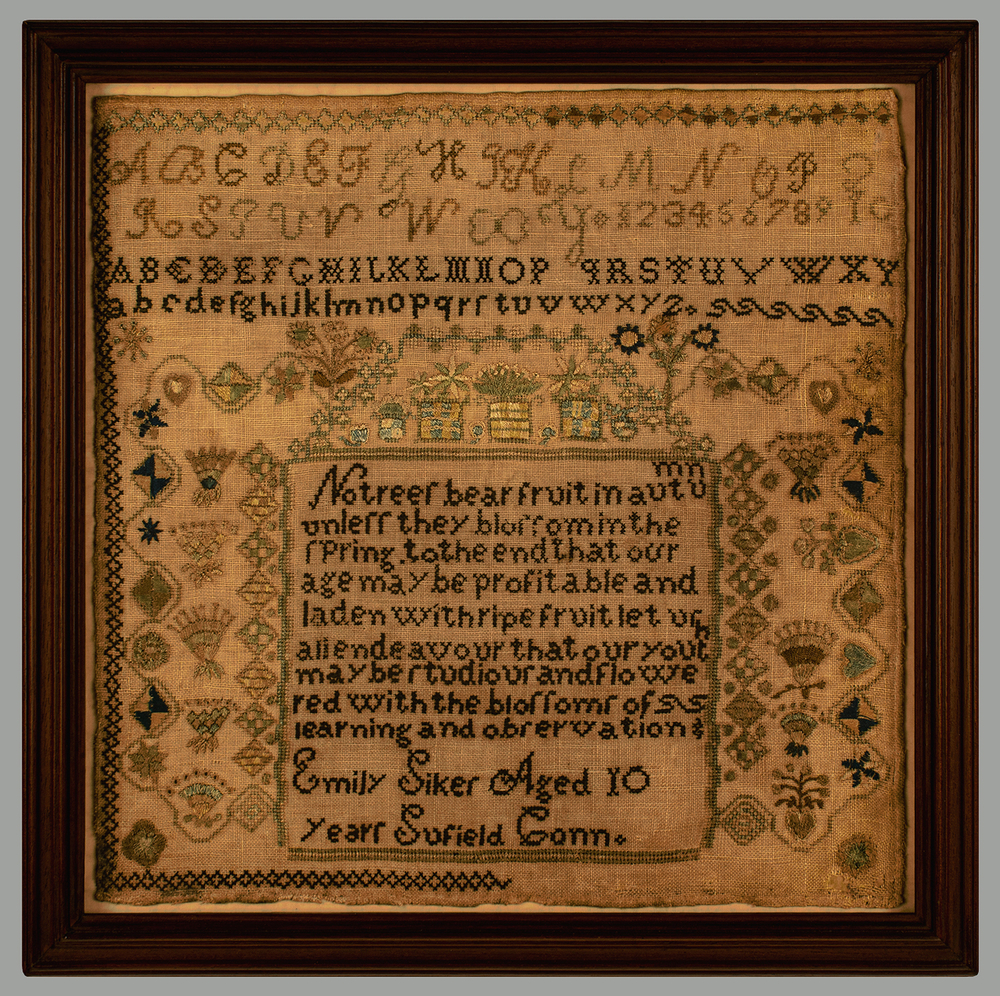 A B C D E F G H I K L M N O P Q
R S T U V W X Y & 1 2 3 4 5 6 7 8 9 10
A B C D E F G H I L K L M N O P q R S T U V W X Y
a b c d e f g h i j k l m n o p q r ſ t u v w x y z
mn
No treeſ bear fruit in autu
unleſſ they bloſſom in the
ſpring to the end that our
age may be profitable and
laden with ripe fruit let uſ
h
all endeavour that our yout
may be ſtudiouſ and flowe
red with the bloſſomſ of
learning and obſervation
Emily Siker Aged 10
yearſ Sufield Conn.